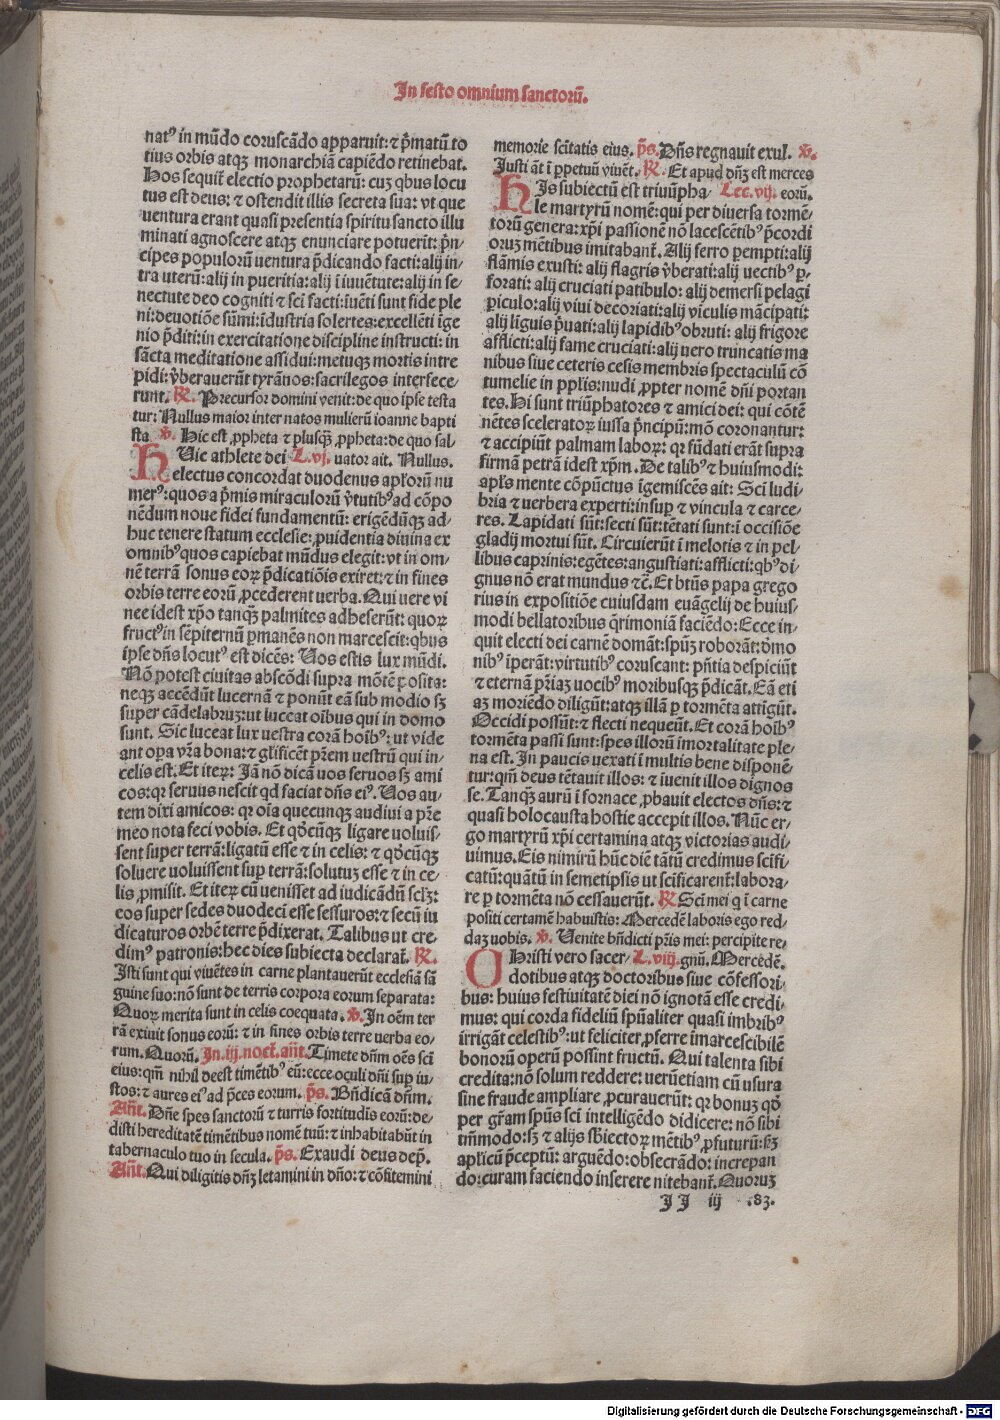 In festo omnium sanctorū.
natꝰ in mūdo coruscādo apparuit: ⁊ p̄matū to
tius orbis atqꝫ monarchiā capiēdo retinebat.
Hos sequit̄ electio prophetarū: cuꝫ qbus locu
tus est deus: ⁊ ostendit illis secreta sua: vt que
uentura erant quasi presentia spiritu sancto illu
minati agnoscere atqꝫ enunciare potuerīt: p̄n-
cipes populorū uentura p̄dicando facti: alij in-
tra uterū: alij in pueritia: alij ī iuuētute: alij in se-
nectute deo cogniti ⁊ sc̄i facti: iuēti sunt fide ple
ni: deuotiōe sūmi: īdustria solertes: excellēti īge
nio p̄diti: in exercitatione discipline instructi: in
sācta meditatione assidui: metuqꝫ mortis intre
pidi: v̄berauerūt tyrānos: sacrilegos interfece-
runt. ℟. Precursor domini venit: de quo ipse testa
tur: Nullus maior inter natos mulierū ioanne bapti
sta. ℣. Hic est ꝓpheta ⁊ plusqꝫ̄ ꝓpheta: de quo sal
Huic athlete dei L.vj. uator ait. Nullus.
electus concordat duodenus apl'orū nu
merꝰ: quos a p̄mis miraculorū v̄tutibꝰ ad cōpo
nēdum noue fidei fundamentū: erigēdūqꝫ ad-
huc tenere statum ecclesie: ꝓuidentia diuina ex
omnibꝰ quos capiebat mūdus elegit: vt in om-
nē terrā sonus eoꝝ p̄dicatiōis exiret: ⁊ in fines
orbis terre eorū ꝓcederent uerba. Qui uere vi
nee idest xp̄o tanqꝫ̄ palmites adheserūt: quoꝝ
fructꝰ in sēpiternū ꝑmanēs non marcescit: qbus
ipse dn̄s locutꝰ est dicēs: Uos estis lux mūdi.
Nō potest ciuitas abscōdi supra mōtē posita:
neqꝫ accēdūt lucernā ⁊ ponūt eā sub modio sꝫ
super cādelabruꝫ: ut luceat oībus qui in domo
sunt. Sic luceat lux uestra corā hoībꝰ: ut vide
ant oꝑa vr̄a bona: ⁊ gl'ificēt pr̄em uestrū qui in-
celis est. Et iteꝝ: Iā nō dicā uos seruos sꝫ ami
cos: qꝛ seruus nescit qd faciat dn̄s eiꝰ. Uos au-
tem dixi amicos: qꝛ oīa quecunqꝫ audiui a pr̄e
meo nota feci vobis. Et qd̓cūqꝫ ligare uoluis-
sent super terrā: ligatū esse ⁊ in celis: ⁊ qd̓cūqꝫ
soluere uoluissent suꝑ terrā: solutuꝫ esse ⁊ in ce-
lis ꝓmisit. Et iteꝝ cū uenisset ad iudicādū sclꝫ:
eos super sedes duodeci esse sessuros: ⁊ secū iu
dicaturos orbē terre p̄dixerat. Talibus ut cre-
dimꝰ patronis: hec dies subiecta declarat̄. ℟.
Isti sunt qui viuētes in carne plantauerūt ecclesiā sā
guine suo: nō sunt de terris corpora eorum separata:
Quoꝝ merita sunt in celis coequata. ℣. In oēm ter
rā exiuit sonus eorū: ⁊ in fines orbis terre uerba eo-
rum. Quorū. In .iij. noct̄. an̄t. Timete dn̄m oēs sc̄i
eius: qm̄ nihil deest timētibꝰ eū: ecce oculi dn̄i suꝑ iu-
stos: ⁊ aures eiꝰ ad p̄ces eorum. p̄s. Bn̄dicā dn̄m.
An̄t. Dn̄e spes sanctorū ⁊ turris fortitudis eorū: de-
disti hereditatē timētibus nomē tuū: ⁊ inhabitabūt in
tabernaculo tuo in secula. p̄s. Exaudi deus dep̄.
An̄t. Qui diligitis dn̄ꝫ letamini in dn̄o: ⁊ cōfitemini
memorie sc̄itatis eius. p̄s. Dn̄s regnauit exul̄. ℣.
Iusti āt ī ꝑpetuū viuēt. ℟. Et apud dn̄ꝫ est merces
His subiectū est triūpha- Lec. vij. eorū.
le martyrū nomē: qui per diuersa tormē-
torū genera: xp̄i passionē nō lacescētibꝰ p̄cordi
oruꝫ mētibus imitabant̄. Alij ferro ꝑempti: alij
flāmis exusti: alij flagris v̄berati: alij uectibꝰ ꝑ-
forati: alij cruciati patibulo: alij demersi pelagi
ꝑiculo: alij viui decoriati: alij viculis mācipati:
alij liguis p̄uati: alij lapidibꝰ obruti: alij frigore
afflicti: alij fame cruciati: alij uero truncatis ma
nibus siue ceteris cesis membris spectaculū cō
tumelie in pp̄lis: nudi ꝓpter nomē dn̄i portan
tes. Hi sunt triūphatores ⁊ amici dei: qui cōtē
nētes sceleratoꝝ iussa p̄ncipū: mō coronantur:
⁊ accipiūt palmam laboꝝ: qꝛ fūdati erāt supra
firmā petrā idest xp̄m. De talibꝰ ⁊ huiusmodi:
apl's mente cōpūctus īgemiscēs ait: Sc̄i ludi-
bria ⁊ uerbera experti: insuꝑ ⁊ vincula ⁊ carce-
res. Lapidati sūt: secti sūt: tētati sunt: ī occisiōe
gladij mortui sūt. Circuierūt ī melotis ⁊ in pel-
libus caprinis: egētes: angustiati: afflicti: qbꝰ di-
gnus nō erat mundus ⁊c̄. Et btūs papa grego
rius in expositiōe cuiusdam euāgelij de huius-
modi bellatoribus qrimoniā faciēdo: Ecce in-
quit electi dei carnē domāt: spūꝫ roborāt: dēmo
nibꝰ īperāt: virtutibꝰ coruscant: pn̄tia despiciūt
⁊ eternā pr̄iaꝫ uocibꝰ moribusqꝫ p̄dicāt. Eā eti
aꝫ moriēdo diligūt: atqꝫ illā ꝑ tormēta attigūt.
Occidi possūt: ⁊ flecti nequeūt. Et corā hoībꝰ
tormēta passi sunt: spes illorū imortalitate ple-
na est. In paucis uexati ī multis bene disponē-
tur: qm̄ deus tētauit illos: ⁊ iuenit illos dignos
se. Tanqꝫ̄ aurū ī fornace ꝓbauit electos dn̄s: ⁊
quasi holocausta hostie accepit illos. Nūc er-
go martyrū xp̄i certamina atqꝫ victorias audi-
uimus. Eis nimirū hūc diē tātū credimus sc̄ifi-
catū: quātū in semetipsis ut sc̄ificarent̄: labora-
re ꝑ tormēta nō cessauerūt. ℟. Sc̄i mei q ī carne
positi certamē habuistis: Mercedē laboris ego red-
daꝫ uobis. ℣. Uenite bn̄dicti pr̄is mei: percipite re-
Christi vero sacer- L. viij. gnū. Mercedē.
dotibus atqꝫ doctoribus siue cōfessori-
bus: huius festiuitatē diei nō ignotā esse credi-
mus: qui corda fideliū spūaliter quasi imbribꝰ
irrigāt celestibꝰ: ut feliciter ꝓferre īmarcescibilē
bonorū operū possint fructū. Qui talenta sibi
credita: nō solum reddere: uerūetiam cū usura
sine fraude ampliare ꝓcurauerūt: qꝛ bonuꝫ qd̓
per gr̄am spūs sc̄i intelligēdo didicere: nō sibi
tm̄modo: sꝫ ⁊ alijs sb̄iectoꝝ mētibꝰ ꝓfuturū: sꝫ
apl'icū p̄ceptū: arguēdo: obsecrādo: increpan
do: curam faciendo inserere nitebant̄. Quoruꝫ
JJ iij .83.
Digitalisierung gefördert durch die Deutsche Forschungsgemeinschaft - DFG